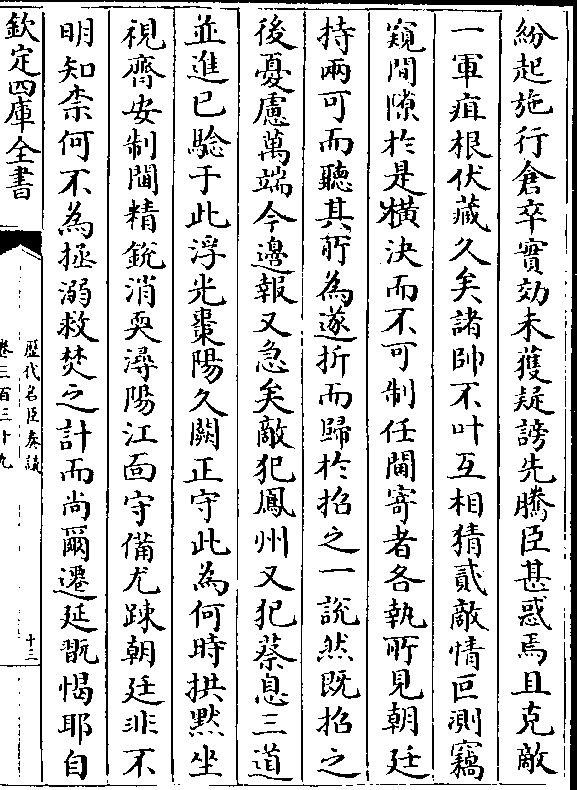 紛起施行倉卒實効未獲疑謗先騰臣甚惑焉且克敵
一軍疽根伏藏久矣諸帥不叶互相猜貳敵情叵測竊
窺間隙於是橫決而不可制任閫寄者各執所見朝廷
持兩可而聽其所為遂折而歸於招之一說然既招之
後憂慮萬端今邊報又急矣敵犯鳳州又犯蔡息三道
並進已驗于此浮光棗陽久闕正守此為何時拱默坐
視齊安制閫精銳消耎潯陽江面守備尤踈朝廷非不
明知柰何不為拯溺救焚之計而尚爾遷延翫愒耶自
欽定四庫全書
歷代名臣奏議
卷三百三十九
十三